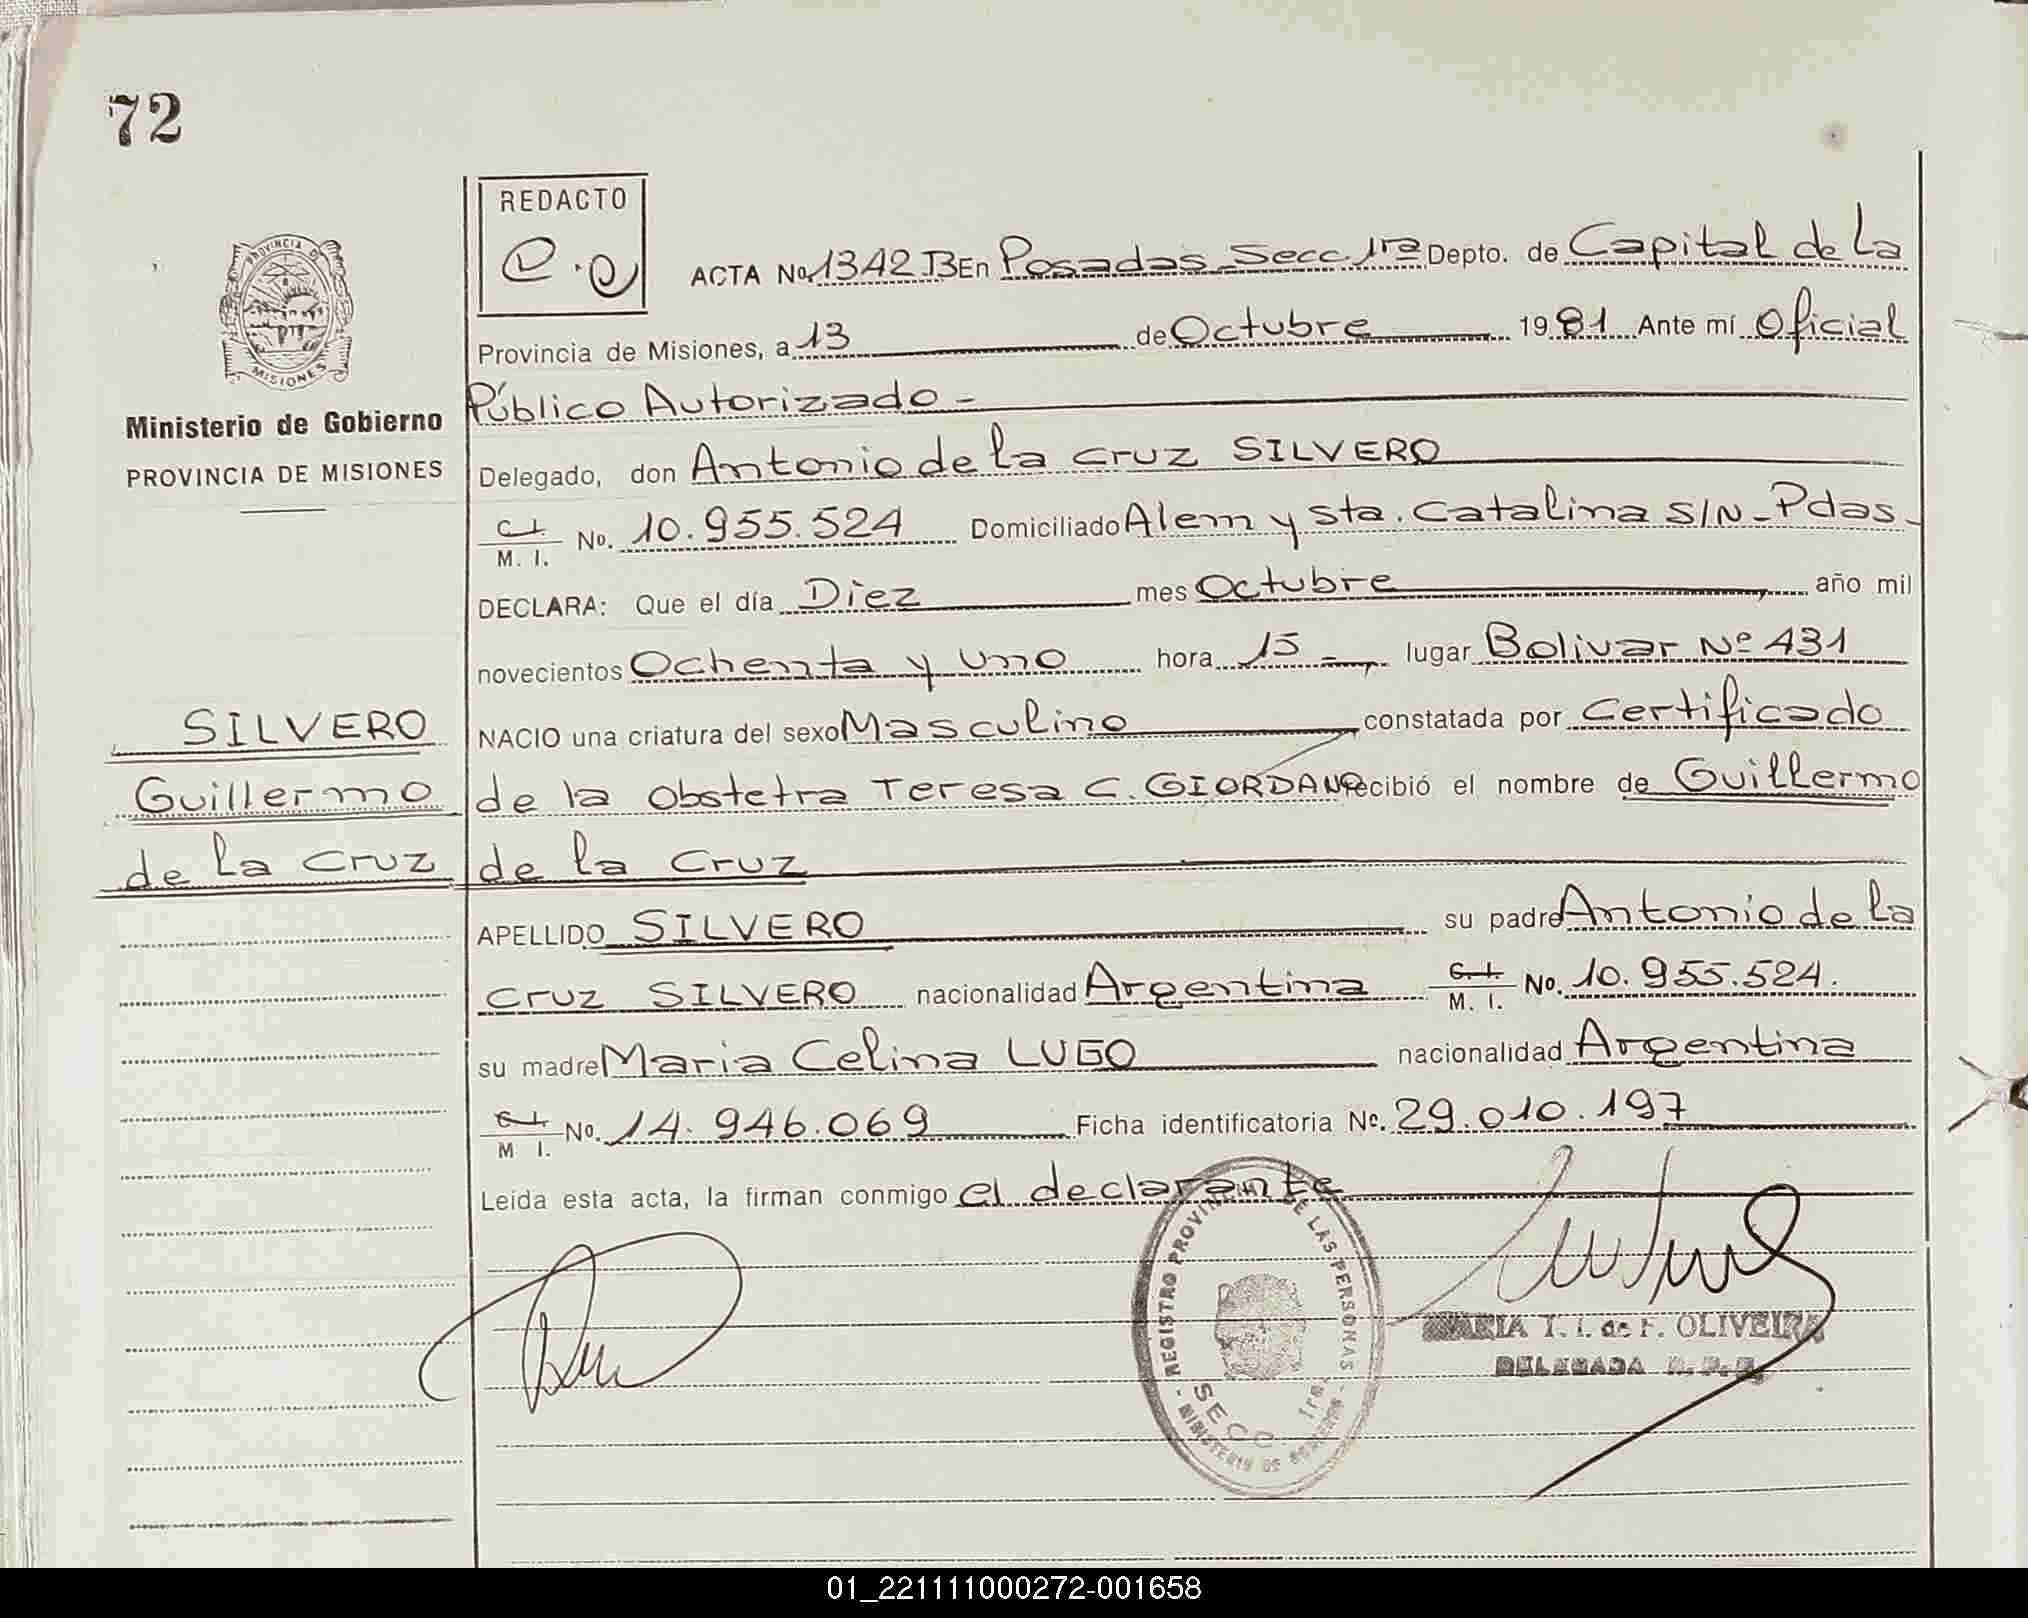 72
REDACTO
PROVINCIA DE
MISIONES
Ministerio de Gobierno
PROVINCIA DE MISIONES
ACTA No. 1342 B En Posadas Secc 1ra Depto. de Capital de La
Provincia de Misiones, a 13 de Octubre 1981 Ante mí Oficial
Público Autorizado -
Delegado, don Antonio de la Cruz SILVERO
C.I. M. I. No. 10.955.524 Domiciliado Alem y Sta. Catalina S/N - Pdas -
DECLARA: Que el día Diez mes Octubre año mil
novecientos Ochenta y uno hora 15 - lugar Bolivar Nº 431
NACIO una criatura del sexo Masculino constatada por Certificado
de la Obstetra Teresa C. GIORDANO recibió el nombre de Guillermo
de la Cruz
SILVERO
Guillermo
de la Cruz
APELLIDO SILVERO su padre Antonio de la
Cruz SILVERO nacionalidad Argentina C.I. M. I. No. 10.955.524.
su madre Maria Celina LUGO nacionalidad Argentina
C.I. M. I. No. 14.946.069 Ficha identificatoria No. 29.010.197
Leída esta acta, la firman conmigo el declarante
REGISTRO PROVINCIAL DE LAS PERSONAS
SECC. 1ra.
MINISTERIO DE GOBIERNO
MARIA T. I. de F. OLIVEIRA
DELEGADA
01_221111000272-001658